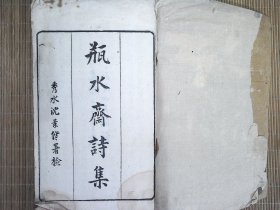 瓶水齋詩集
秀水沈景修署檢